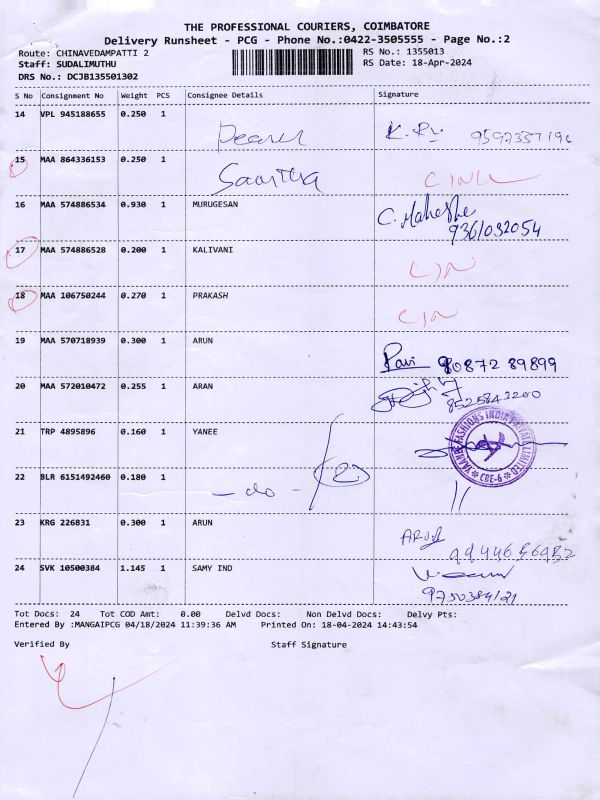 THE PROFESSIONAL COURIERS, COIMBATORE
Delivery Runsheet - PCG - Phone No.:0422-3505555 - Page No.:2
Route: CHINAVEDAMPATTI 2 RS No.: 1355013
Staff: SUDALIMUTHU RS Date: 18-Apr-2024
DRS No.: DCJB135501302
S No Consignment No Weight PCS Consignee Details Signature
14 VPL 945188655 0.250 1
15 MAA 864336153 0.250 1
16 MAA 574886534 0.930 1 MURUGESAN C. Mahesh
9361032054
17 MAA 574886528 0.200 1 KALIVANI
18 MAA 106750244 0.270 1 PRAKASH
19 MAA 570718939 0.300 1 ARUN Ravi 90872 89899
20 MAA 572010472 0.255 1 ARAN 8525843200
21 TRP 4895896 0.160 1 YANEE
YAANEE FASHIONS INDIA PRIVATE LIMITED
CBE-6
22 BLR 6151492460 0.180 1 - do - (2) 11
23 KRG 226831 0.300 1 ARUN ARUN
24 SVK 10500384 1.145 1 SAMY IND
9750384121
Tot Docs: 24 Tot COD Amt: 0.00 Delvd Docs: Non Delvd Docs: Delvy Pts:
Entered By :MANGAIPCG 04/18/2024 11:39:36 AM Printed On: 18-04-2024 14:43:54
Verified By Staff Signature